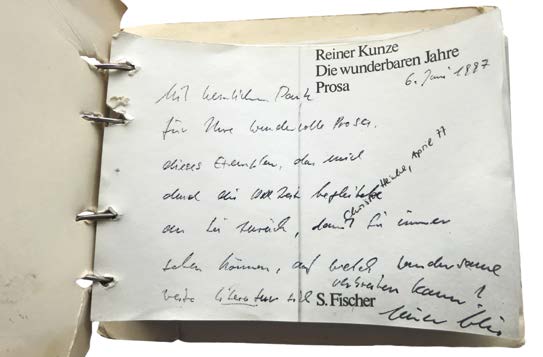 Reiner Kunze
Die wunderbaren Jahre
Prosa
6. Juni 1987
Mit herzlichem Dank
für Ihre wundervolle Prosa,
dieses Exemplar, das mich
durch die DDR Zeit begleitete
an Sie zurück, damit Sie immer
April 77
sehen können, auf welch wundersame
verbreiten kann!
Weise Literatur sich
S. Fischer